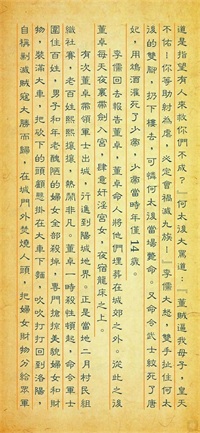 道是指望有人來救你們不成?』何太後大罵道:『董賊逼我母子,皇天
不佑!你等助紂為虐,必定會禍滅九族!』李儒大怒,雙手扯住何太
後的雙腳,扔下樓去,可憐何太後當場斃命。又命令武士絞死了唐
妃,用鴆酒灌死了少帝,少帝當時年僅14歲。
李儒回去報告董卓,董卓命人將他們埋葬在城郊之外。從此之後
董卓每天夜裏帶劍入宮,肆意奸淫宮女,夜宿龍床之上。
有次董卓帶領軍士出城,行進到陽城地界。正是當地二月村民組
織社賽,老百姓熙熙攘攘,熱鬧非凡。董卓一時殺性頓起,命令軍士
圍住百姓,男子和年老醜陋的婦女全部殺掉,專門搶掠美貌婦女和財
物,裝滿大車,把砍下的頭顱懸掛在大車下麵,吹吹打打回到洛陽,
自稱剿滅賊寇大勝而歸,在城門外焚燒人頭,把婦女財物分給眾軍